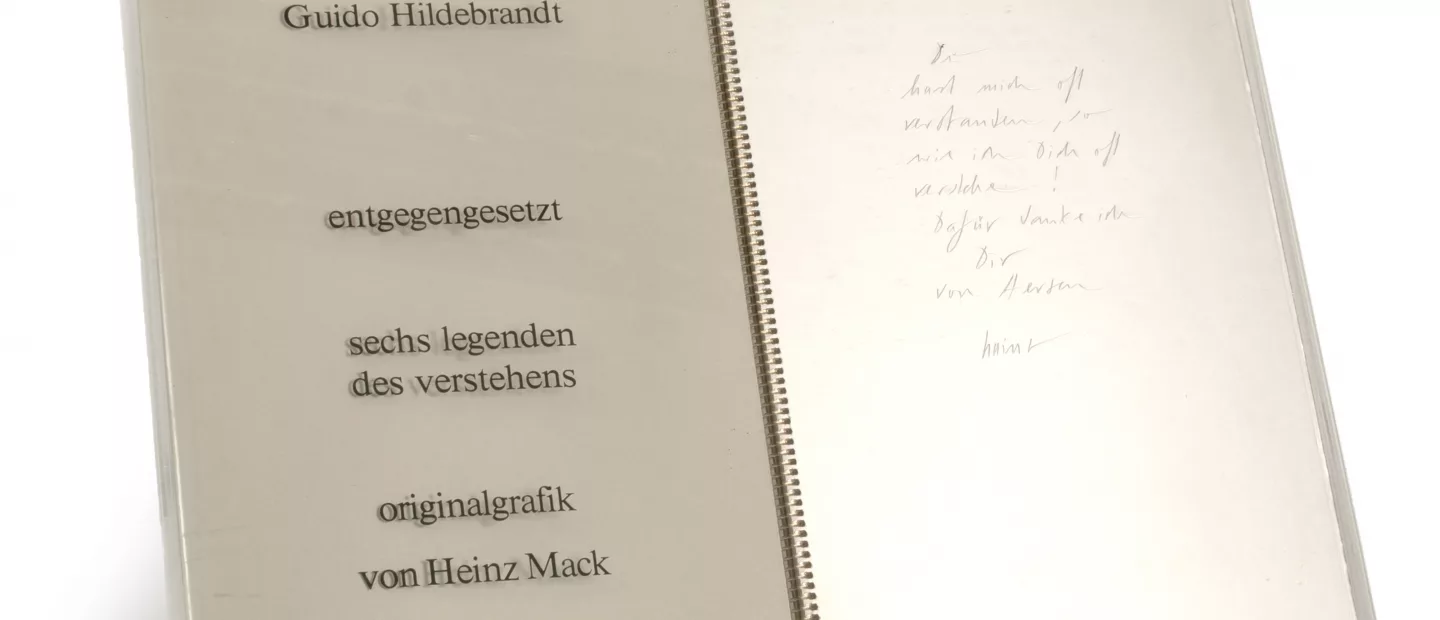 Guido Hildebrandt
entgegengesetzt
sechs legenden
des verstehens
originalgrafik
von Heinz Mack
Du
hast mich oft
verstanden, so
wie ich Dich oft
verstehe !
Dafür danke ich
Dir
von Herzen
heinz